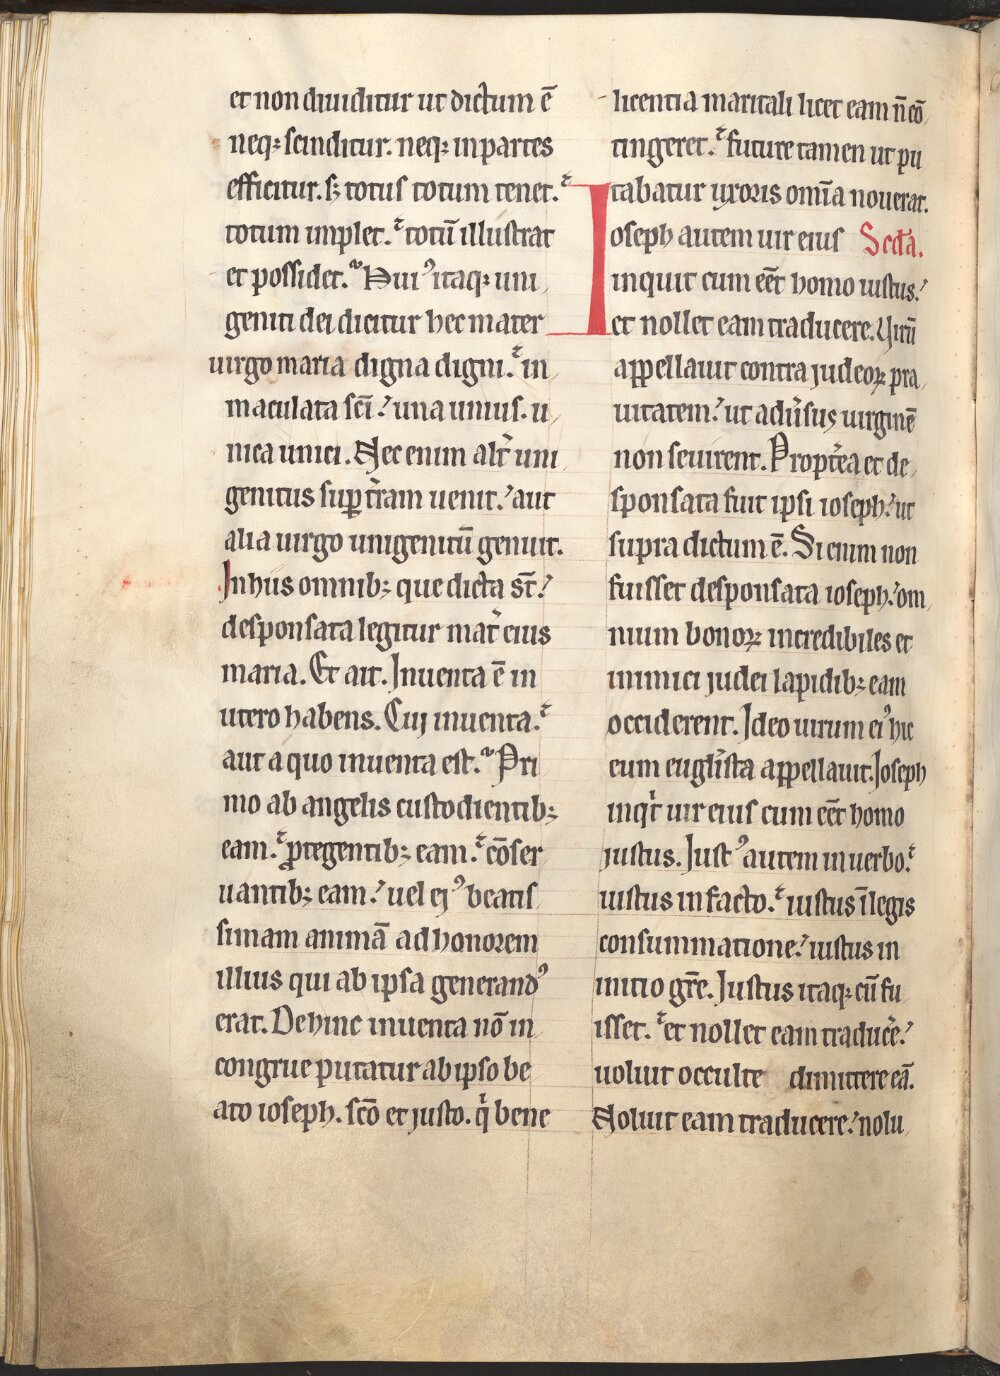 et non diuiditur ut dictum ē
neq; scinditur. neq; in partes
efficitur. s; totus totum tenet.
totum implet. totū illustrat
et possidet. Huiꝰ itaq; uni
geniti dei dicitur hec mater
uirgo maria digna digni. in
maculata sc̄i. una unius. u
nica unici. Nec enim alt̓ uni
genitus sup t̓ram uenit. aut
alia uirgo unigenitū genuit.
In hiis omnib; que dicta st̄.
desponsata legitur mat̓ eius
maria. Et ait. Inuenta ē in
utero habens. Cuj inuenta.
aut a quo inuenta est. Pri
mo ab angelis custodientib;
eam. ꝓtegentib; eam. cōser
uantib; eam. uel ejꝰ beatis
simam animā ad honorem
illius qui ab ipsa generandꝰ
erat. Dehinc inuenta nō in
congrue putatur ab ipso be
ato ioseph. sc̄o et justo. q̓ bene
licentia maritali licet eam n̄ cō
tingeret. future tamen ut pu
tabatur uxoris omīa nouerat.
Ioseph autem uir eius Scd̄a.
inquit cum eēt homo iustus.
et nollet eam traducere. Uirū
appellauit contra judeoꝝ pra
uitatem. ut adu̓sus uirginē
non seuirent. Propt̓ea et de
sponsata fuit ipsi ioseph. ut
supra dictum ē. Si enim non
fuisset desponsata ioseph. om
nium bonoꝝ incredibiles et
inimici judei lapidib; eam
occiderent. Ideo uirum eiꝰ hic
eum eugl̓ista appellauit. Ioseph
inqt̓ uir eius cum eēt homo
justus. Justꝰ autem in uerbo.
iustus in facto. iustus ī legis
consummatione. iustus in
initio gr̄e. Justus itaq; cū fu
isset. et nollet eam traduce̓.
uoluit occulte dimittere eā.
Noluit eam traducere. nolu